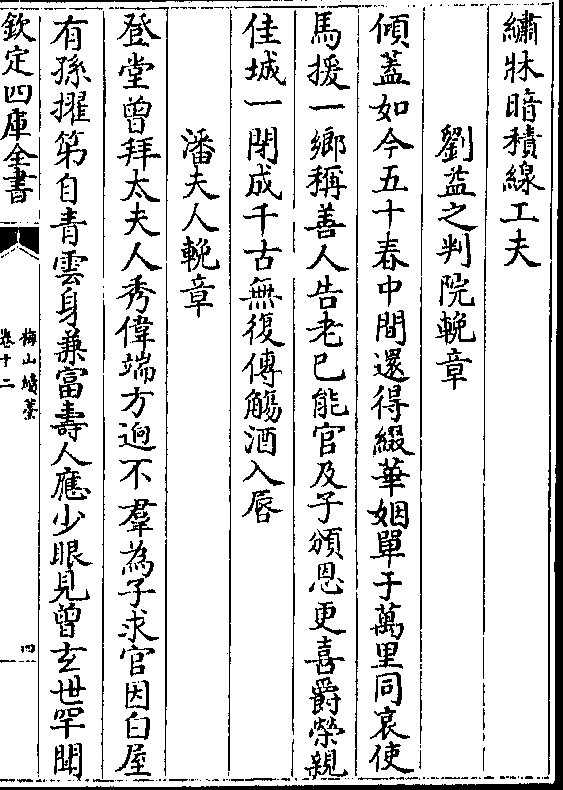 繡牀暗積線工夫
劉益之判院輓章
傾蓋如今五十春中間還得綴華姻單于萬里同哀使
馬援一鄉稱善人告老已能官及子頒恩更喜爵榮親
佳城一閉成千古無復傳觴酒入唇
潘夫人輓章
登堂曾拜太夫人秀偉端方逈不羣為子求官因白屋
有孫擢第自青雲身兼富壽人應少眼見曾玄世罕聞
欽定四庫全書
梅山續藁
卷十二
四